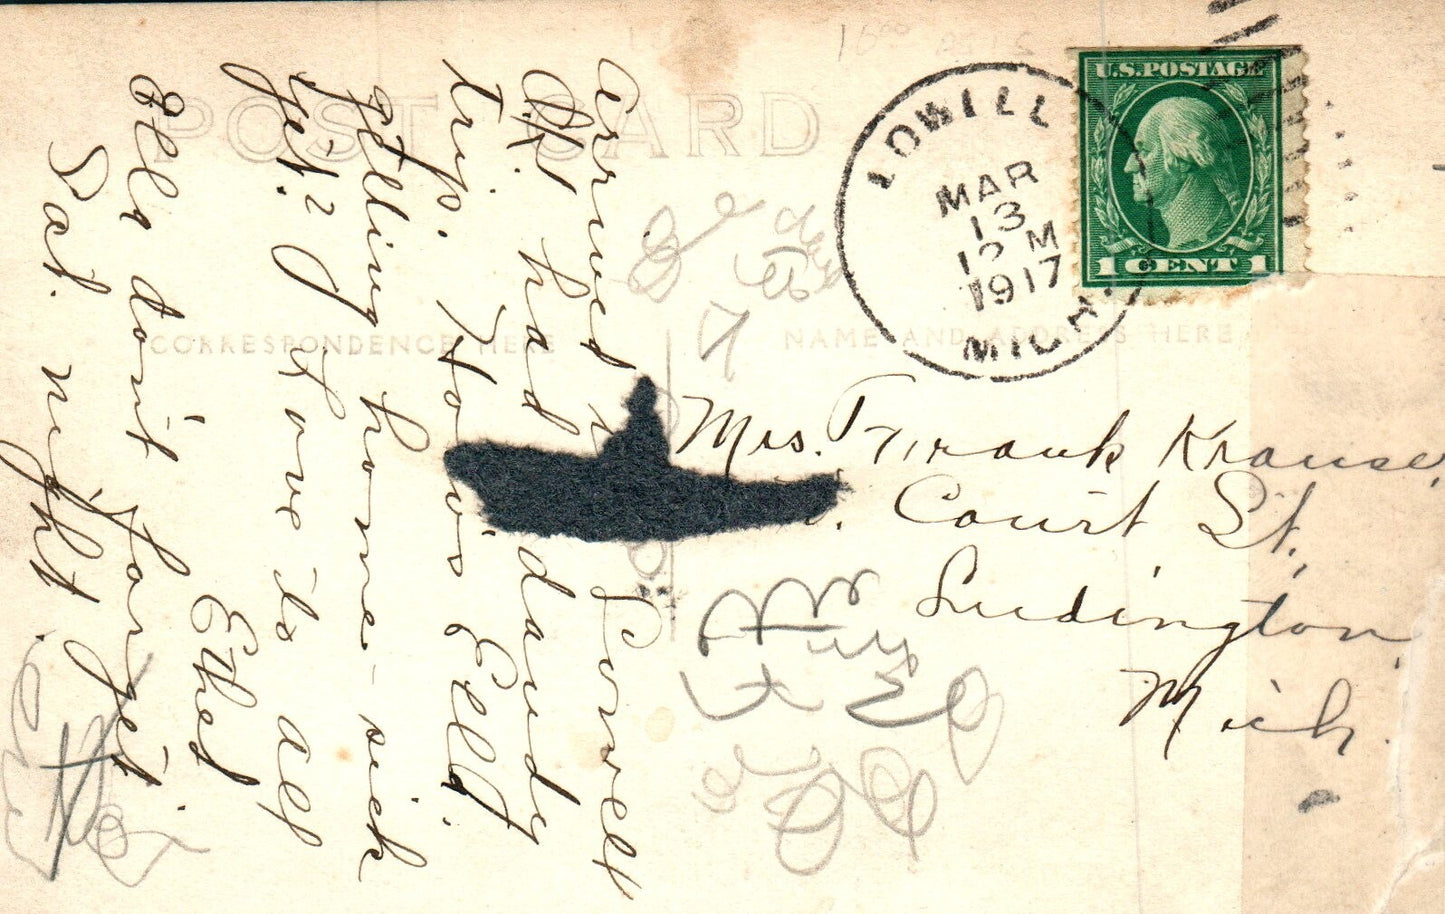 POST CARD
CORRESPONDENCE HERE
NAME AND ADDRESS HERE
U.S. POSTAGE
1 CENT 1
LOWELL
MAR
13
12 M
1917
MICH.
Arrived Lowell
OK. had dandy
trip. How's Ella.
getting home-sick
yet? Love to all
Ethel
Ella don't forget
Sat. night.
Mrs. Frank Krause,
Court St.,
Ludington,
Mich.